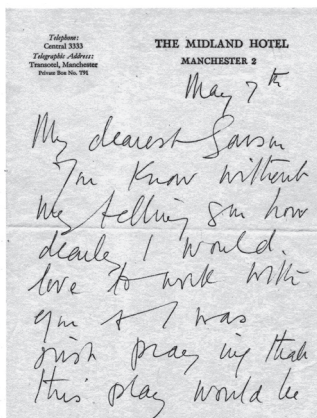 Telephone:
Central 3333
Telegraphic Address:
Transotel, Manchester
Private Box No. 791
THE MIDLAND HOTEL
MANCHESTER 2
May 7th
My dearest
You know without
me telling you how
dearly I would.
love to work with
you & I was
just praying that
this play would be